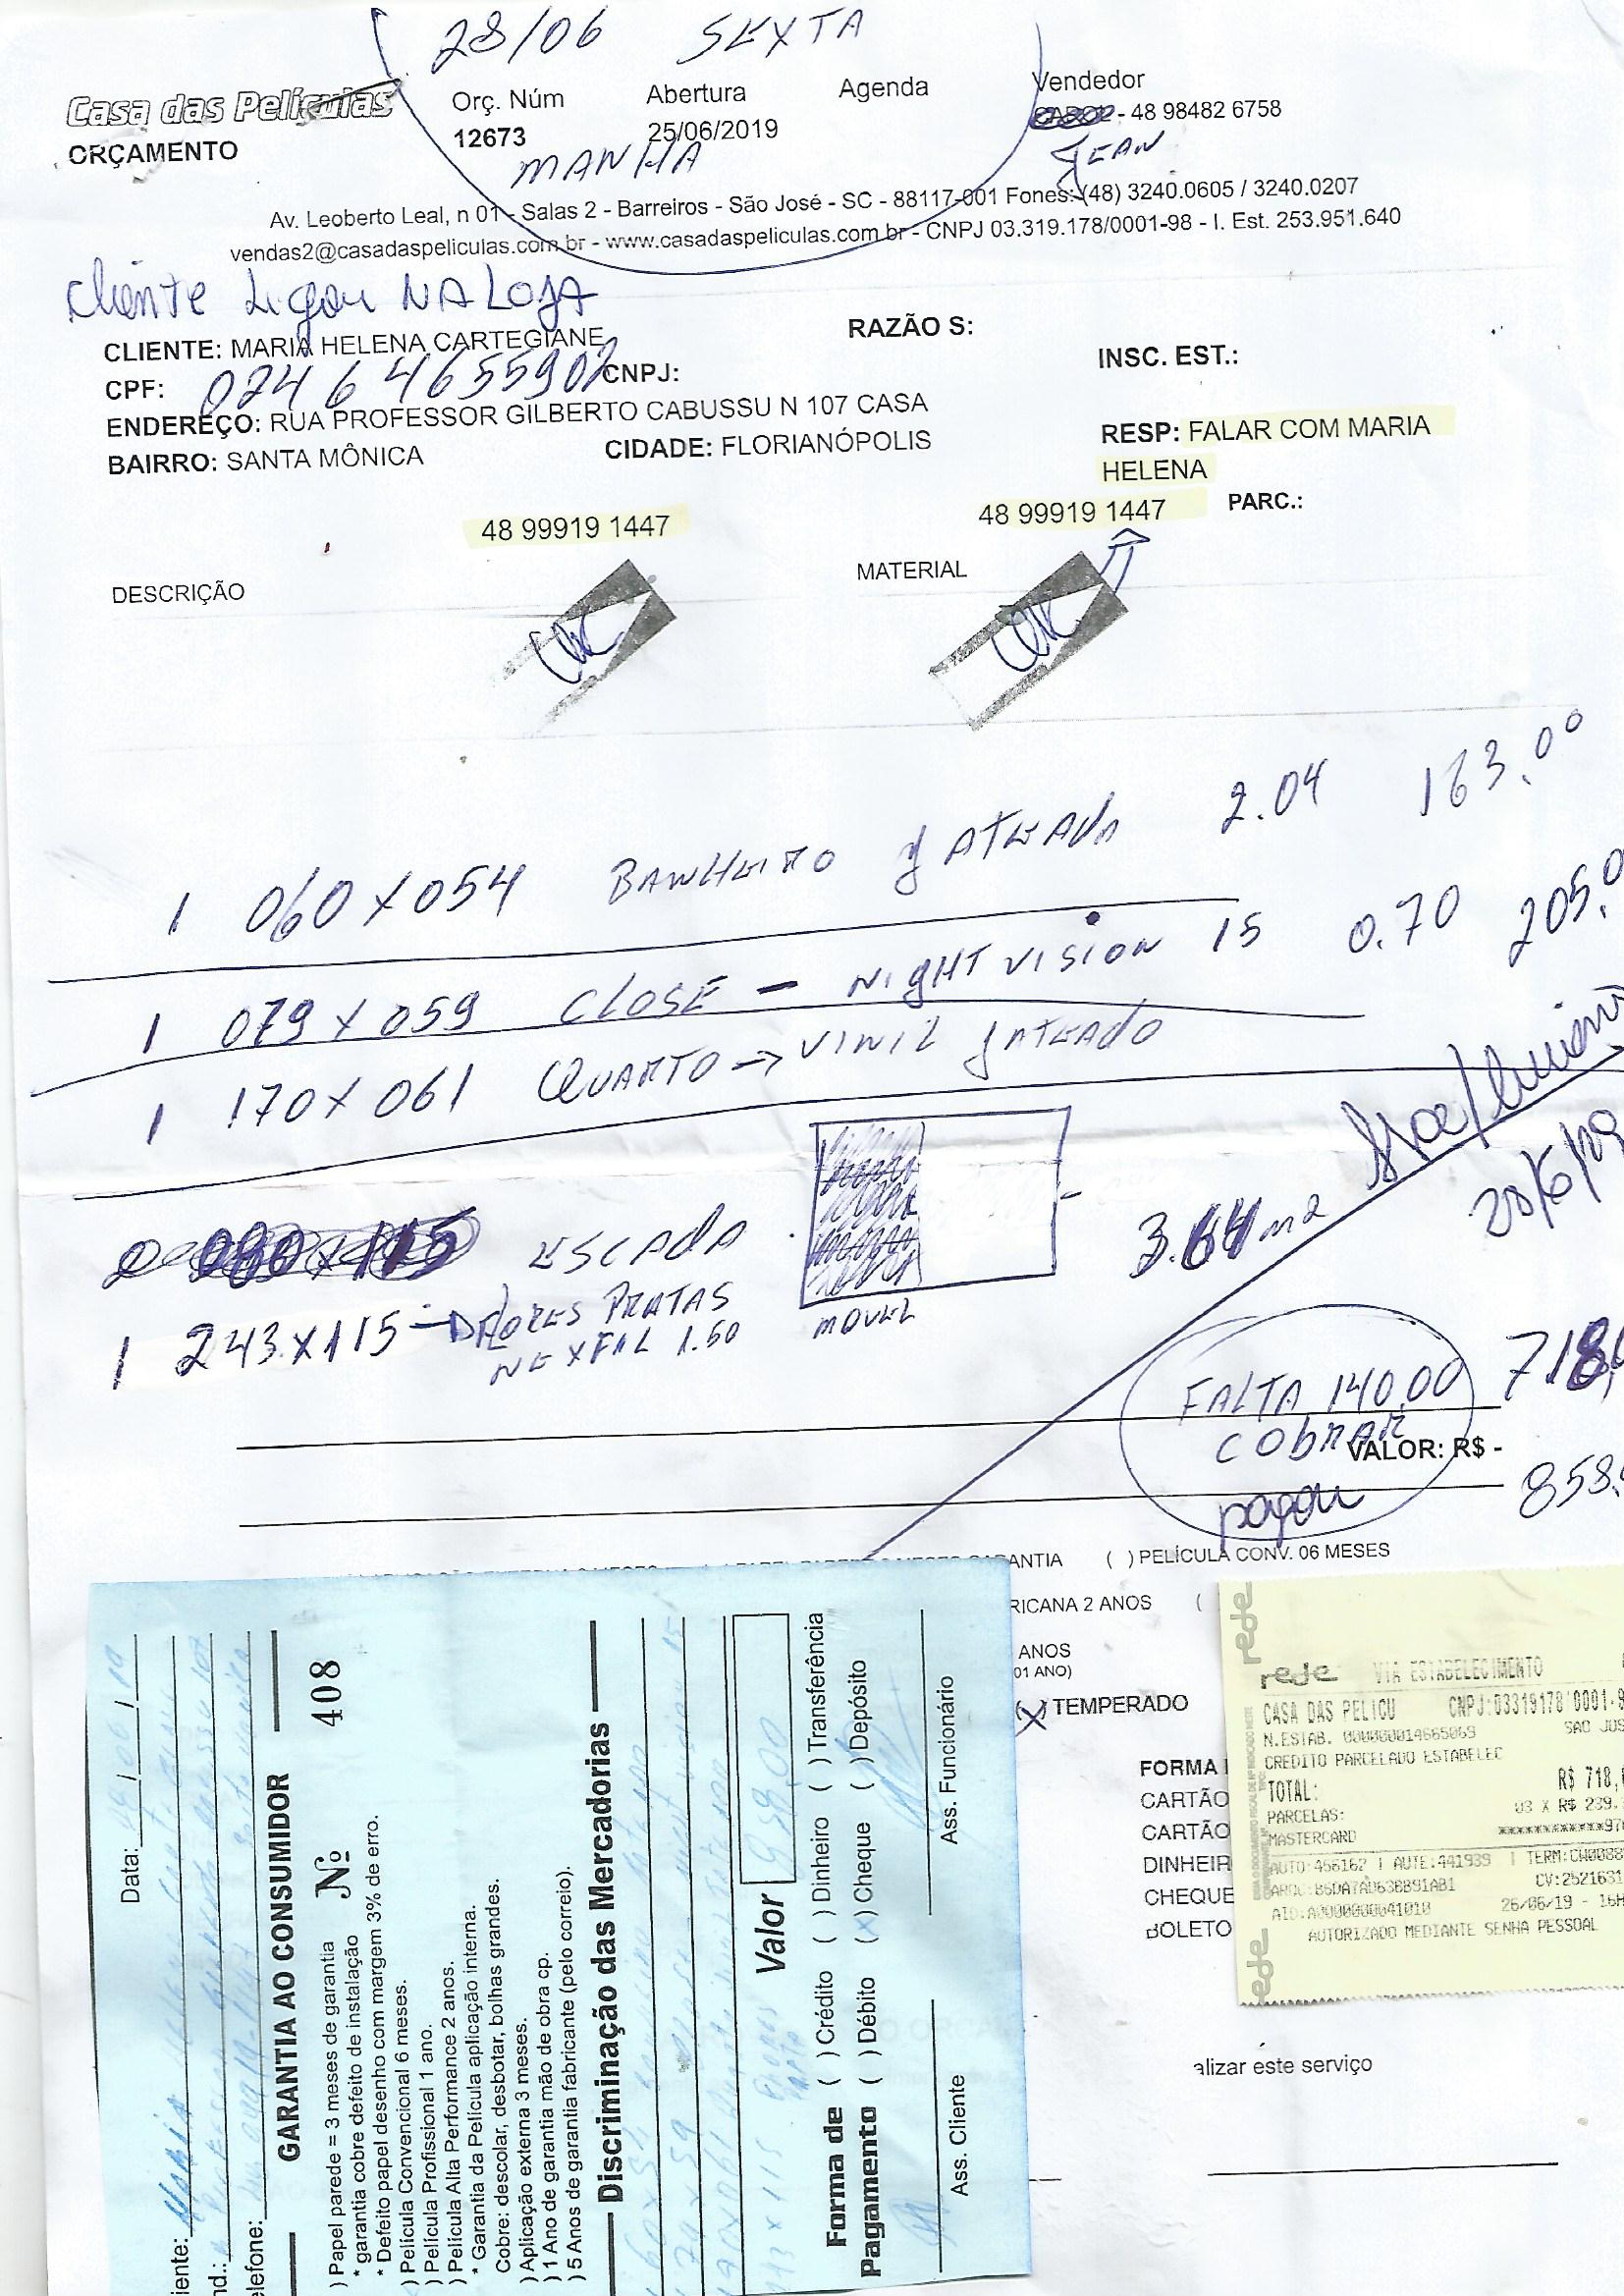 28/06 SEXTA
Casa das Películas
ORÇAMENTO
Orç. Núm
12673
Abertura
25/06/2019
Agenda
Vendedor
- 48 98482 6758
MANHA
JEAN
Av. Leoberto Leal, n 01 - Salas 2 - Barreiros - São José - SC - 88117-001 Fones: (48) 3240.0605 / 3240.0207
vendas2@casadaspeliculas.com.br - www.casadaspeliculas.com.br - CNPJ 03.319.178/0001-98 - I. Est. 253.951.640
Cliente Ligou NA LOJA
CLIENTE: MARIA HELENA CARTEGIANE
RAZÃO S:
CPF: 02464655902
CNPJ:
INSC. EST.:
ENDEREÇO: RUA PROFESSOR GILBERTO CABUSSU N 107 CASA
BAIRRO: SANTA MÔNICA
CIDADE: FLORIANÓPOLIS
RESP: FALAR COM MARIA
HELENA
48 99919 1447
48 99919 1447
PARC.:
DESCRIÇÃO
MATERIAL
OK
OK
1 060 X 054 BANHEIRO JATEADA 2.04 163.00
1 079 X 059 CLOSE - NIGHT VISION 15 0.70 205,0
1 170 X 061 QUARTO → VINIL JATEADO
ESCADA
3.64 m2
1 243 X 115 - FLORES PRATAS
NEXFIL 1.50
MOVEL
28/6/19
FALTA 140,00
COBRAR
pagou
718,
VALOR: R$ -
858,
GARANTIA ( ) PELÍCULA CONV. 06 MESES
RICANA 2 ANOS (
ANOS
01 ANO)
(X) TEMPERADO
FORMA
CARTÃO
CARTÃO
DINHEIR
CHEQUE
BOLETO
alizar este serviço
Data:
iente: Maria
nd.:
elefone:
GARANTIA AO CONSUMIDOR
Nº 408
) Papel parede = 3 meses de garantia
* garantia cobre defeito de instalação
* Defeito papel desenho com margem 3% de erro.
) Película Convencional 6 meses.
) Película Profissional 1 ano.
) Película Alta Performance 2 anos.
* Garantia da Película aplicação interna.
Cobre: descolar, desbotar, bolhas grandes.
) Aplicação externa 3 meses.
) 1 Ano de garantia mão de obra cp.
) 5 Anos de garantia fabricante (pelo correio).
Discriminação das Mercadorias
Valor
Forma de Pagamento
( ) Crédito ( ) Dinheiro ( ) Transferência
( ) Débito (x) Cheque ( ) Depósito
Ass. Cliente
Ass. Funcionário
rede
rede VIA ESTABELECIMENTO
CASA DAS PELICU CNPJ:03319178'0001-9
N.ESTAB. 000000014665069 SAO JOS
CREDITO PARCELADO ESTABELEC
TOTAL: R$ 718,
PARCELAS: 03 X R$ 239.
MASTERCARD
AUTO:456162 | AUTE:441939 | TERM:
ARQC:B6DA7AD63BB91AB1 CV:2521631
AID:A0000000041010 26/06/19 - 16H
AUTORIZADO MEDIANTE SENHA PESSOAL
rede